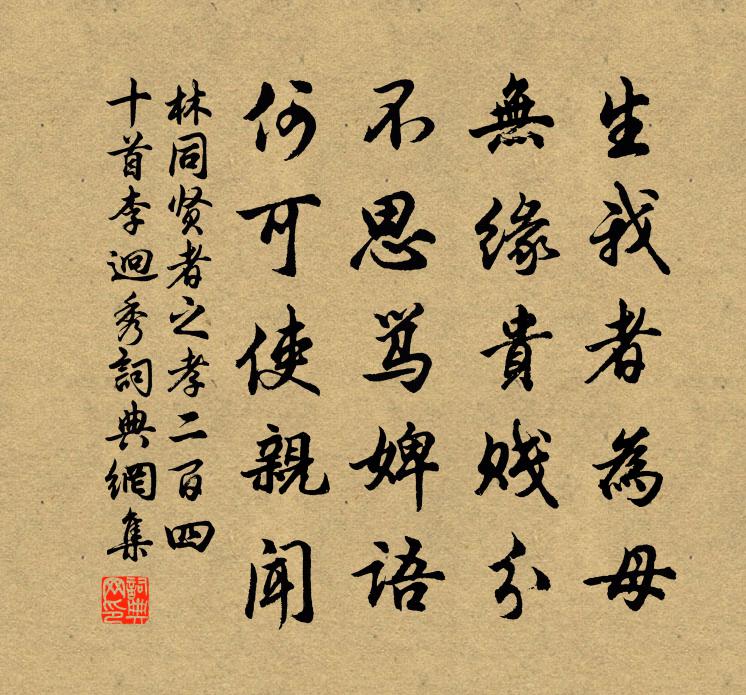 生我者為母
無緣貴賤分
不思骂婢語
何可使親聞
林同贤者之孝二百四
十首李迥秀詞典網集
詞典
网印